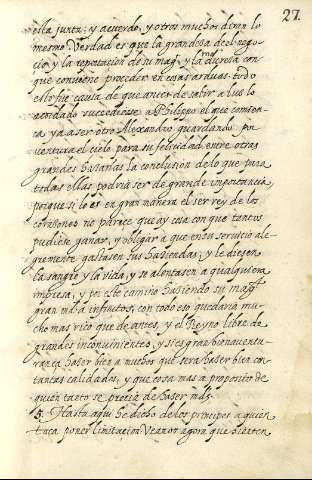 27.
esta junta; y acuerdo, y otros muchos diran lo
mesmo Verdad es que la grandeza del nego-
cio y la reputacion de su magd. y la cordura con
que conviene proceder en cosas arduas todo
fue causa de que antes de saber a luz lo
acordado sucediesse a Philippo el que comien-
ca ya a ser otro Alexandro guardando por
ventura el cielo para su felicidad entre otras
grandes hasañas la conclusion de lo que para
todas ellas podria ser de grande importancia,
porque si lo es en gran manera el ser rey de los
coraçones no parece que ay cosa con que tanto se
pudiese ganar, y obligar a que en su servicio ale-
gremente gastasen sus hasiendas, y le diesen
la sangre y la vida, y se alentasen a qualquiera
impresa, y por este camino hasiendo su magd.
gran md. a infinitos, con todo eso quedaria mu-
cho mas rico que de antes, y el Reyno libre de
grandes inconvinientes, y si es gran bienaventu-
ranca haser bien a muchos que sera haser bien con
tantas calidades, y que cosa mas a proposito de
quien tanto se precia de haser mds.
5. Hasta aqui he dicho de los principes a quien
toca poner limitacion Veamos agora que sienten